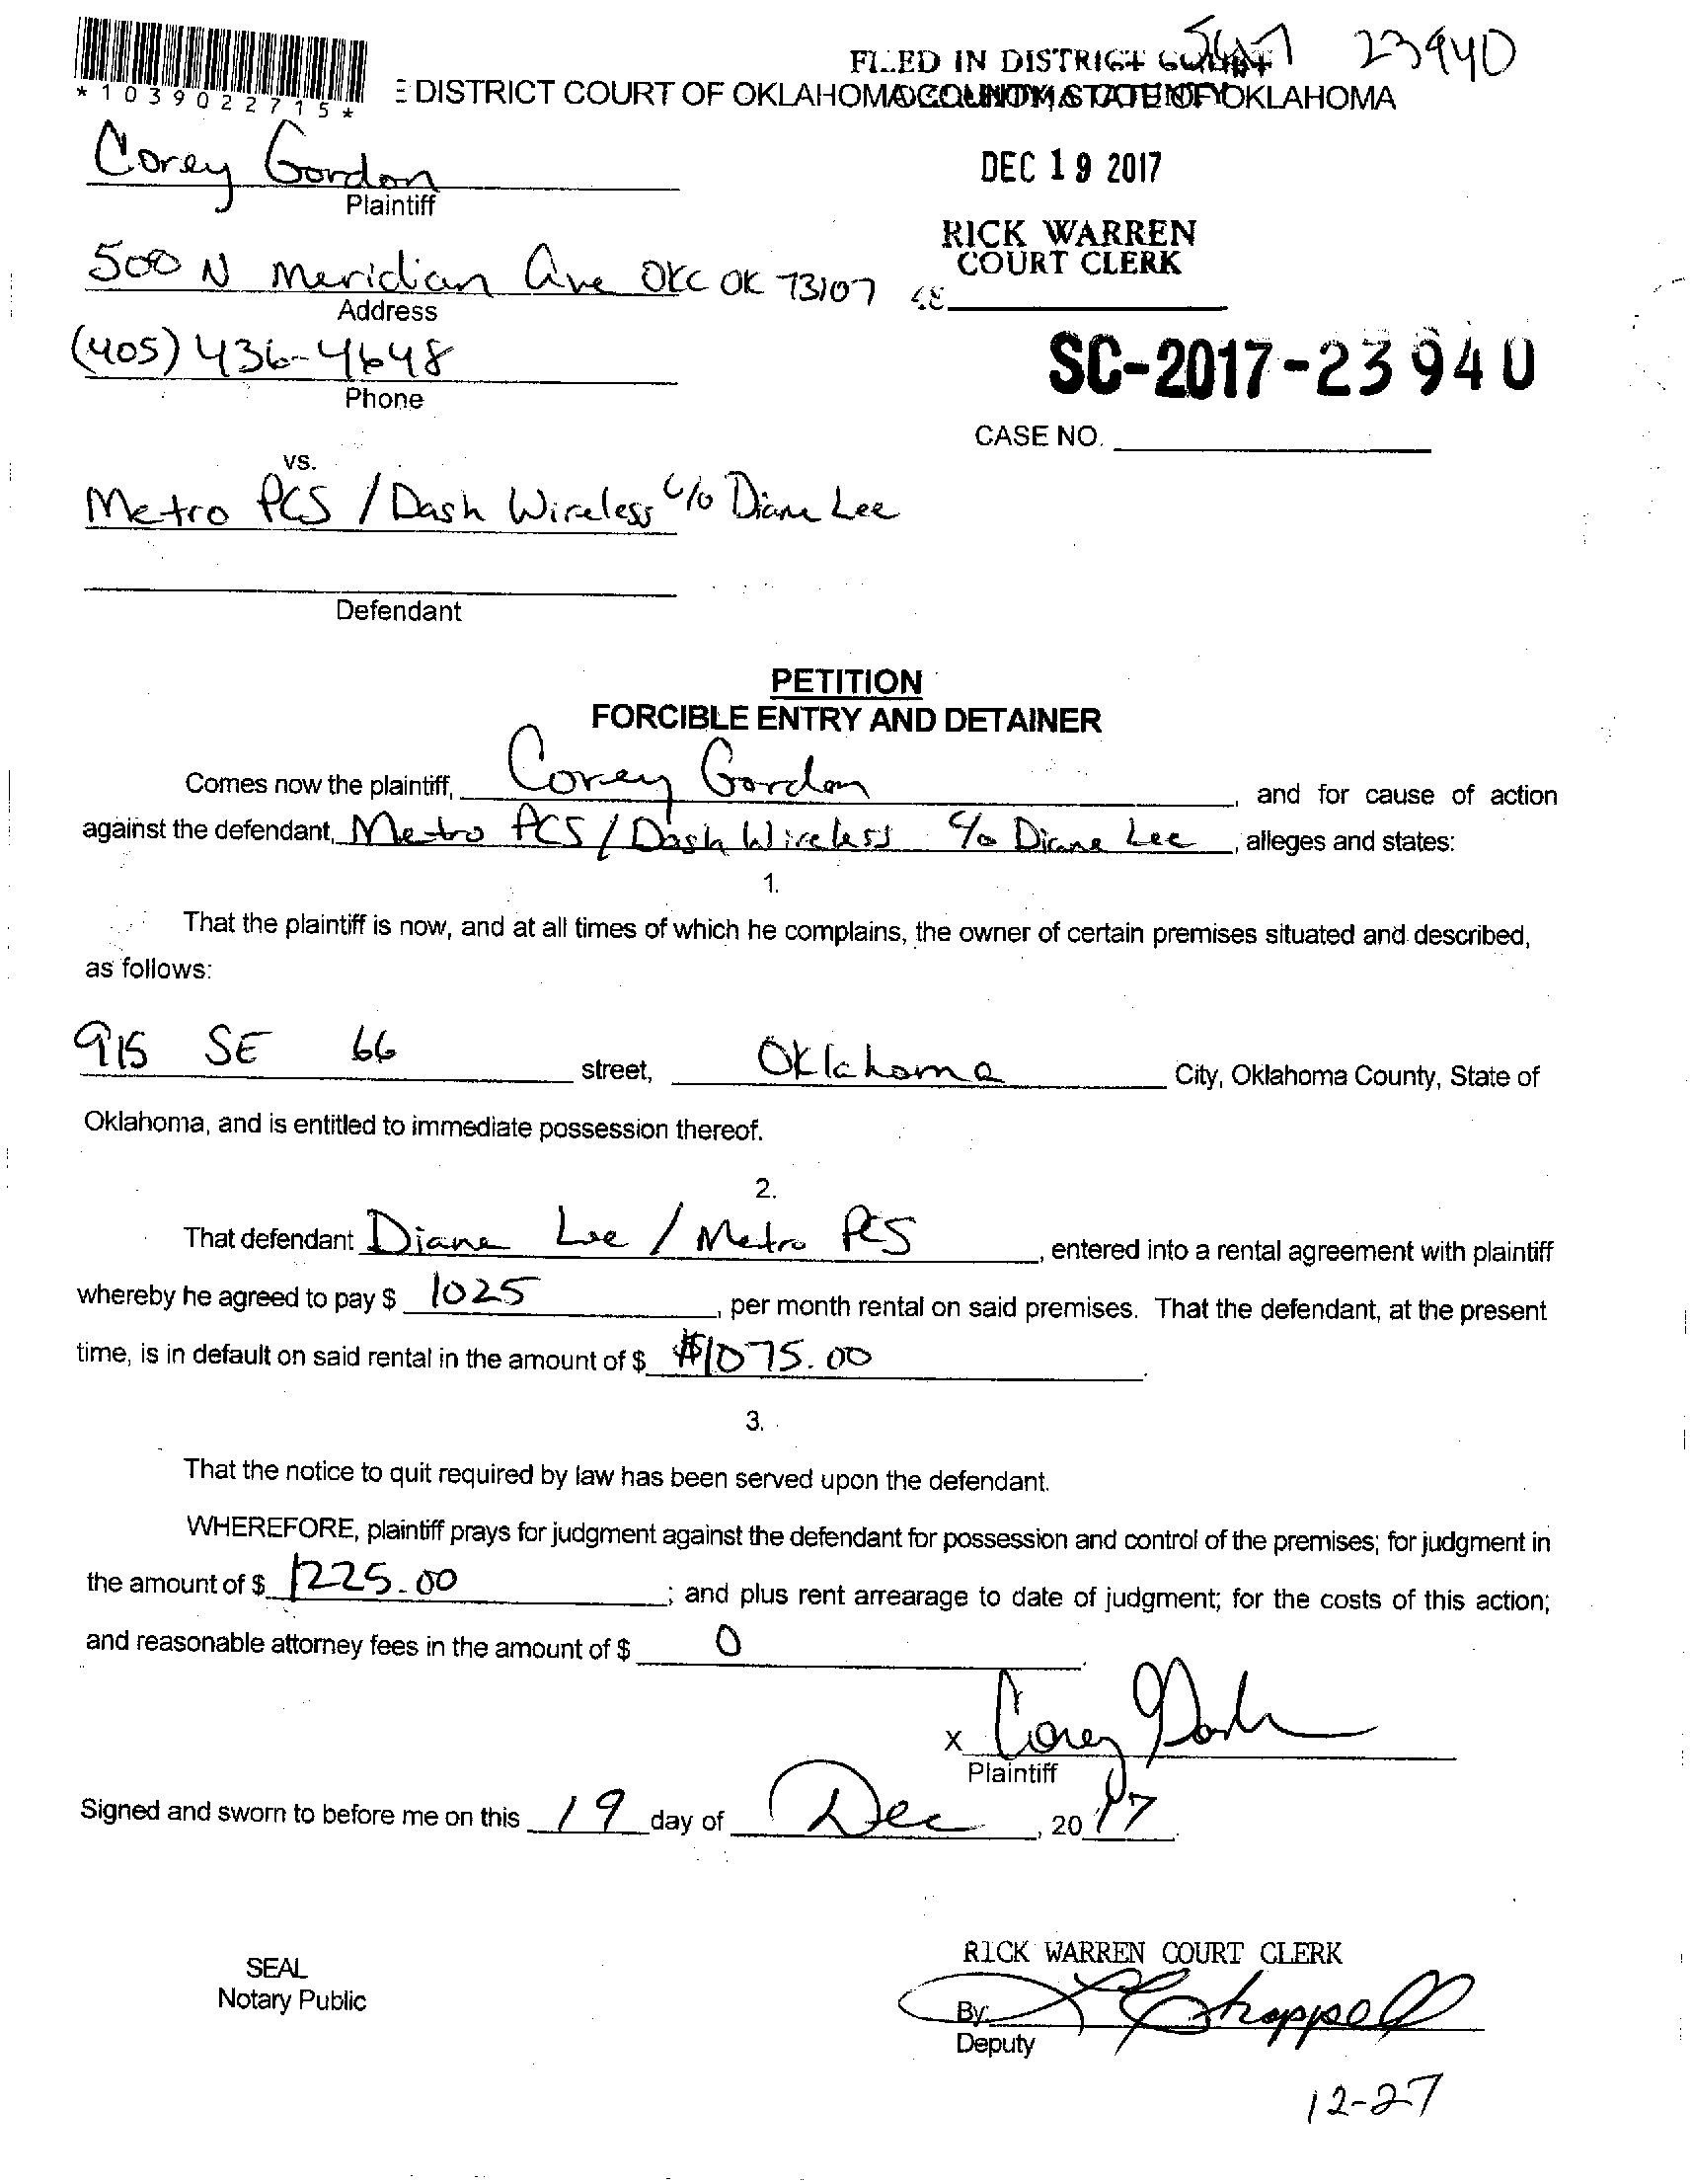 23940
FILED IN DISTRICT COURT
*1039022715*
E DISTRICT COURT OF OKLAHOMA COUNTY, STATE OF OKLAHOMA
OKLAHOMA COUNTY
Corey Gordon
Plaintiff
DEC 19 2017
RICK WARREN
COURT CLERK
500 N Meridian Ave OKC OK 73107
Address
48
(405) 436-4648
Phone
SC-2017-23940
CASE NO.
vs.
Metro PCS / Dash Wireless c/o Diane Lee
Defendant
PETITION
FORCIBLE ENTRY AND DETAINER
Comes now the plaintiff, Corey Gordon, and for cause of action
against the defendant, Metro PCS / Dash Wireless c/o Diane Lee, alleges and states:
1.
That the plaintiff is now, and at all times of which he complains, the owner of certain premises situated and described,
as follows:
915 SE 66 street, Oklahoma City, Oklahoma County, State of
Oklahoma, and is entitled to immediate possession thereof.
2.
That defendant Diane Lee / Metro PCS, entered into a rental agreement with plaintiff
whereby he agreed to pay $ 1025, per month rental on said premises. That the defendant, at the present
time, is in default on said rental in the amount of $ $1075.00.
3.
That the notice to quit required by law has been served upon the defendant.
WHEREFORE, plaintiff prays for judgment against the defendant for possession and control of the premises; for judgment in
the amount of $ 1225.00; and plus rent arrearage to date of judgment; for the costs of this action;
and reasonable attorney fees in the amount of $ 0.
x Corey Gordon
Plaintiff
Signed and sworn to before me on this 19 day of Dec, 2017.
RICK WARREN COURT CLERK
SEAL
Notary Public
By: Chappell
Deputy
12-27